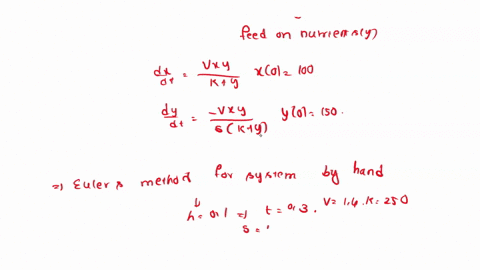 feed on nutrients(y)
dx/dt = Vxy/K+y x(0)=100
dy/dt = -Vxy/s(K+y) y(0)=150.
=) Euler's method for system by hand
h=0.1 =) t=0.3. V=1.4. K=250
s=